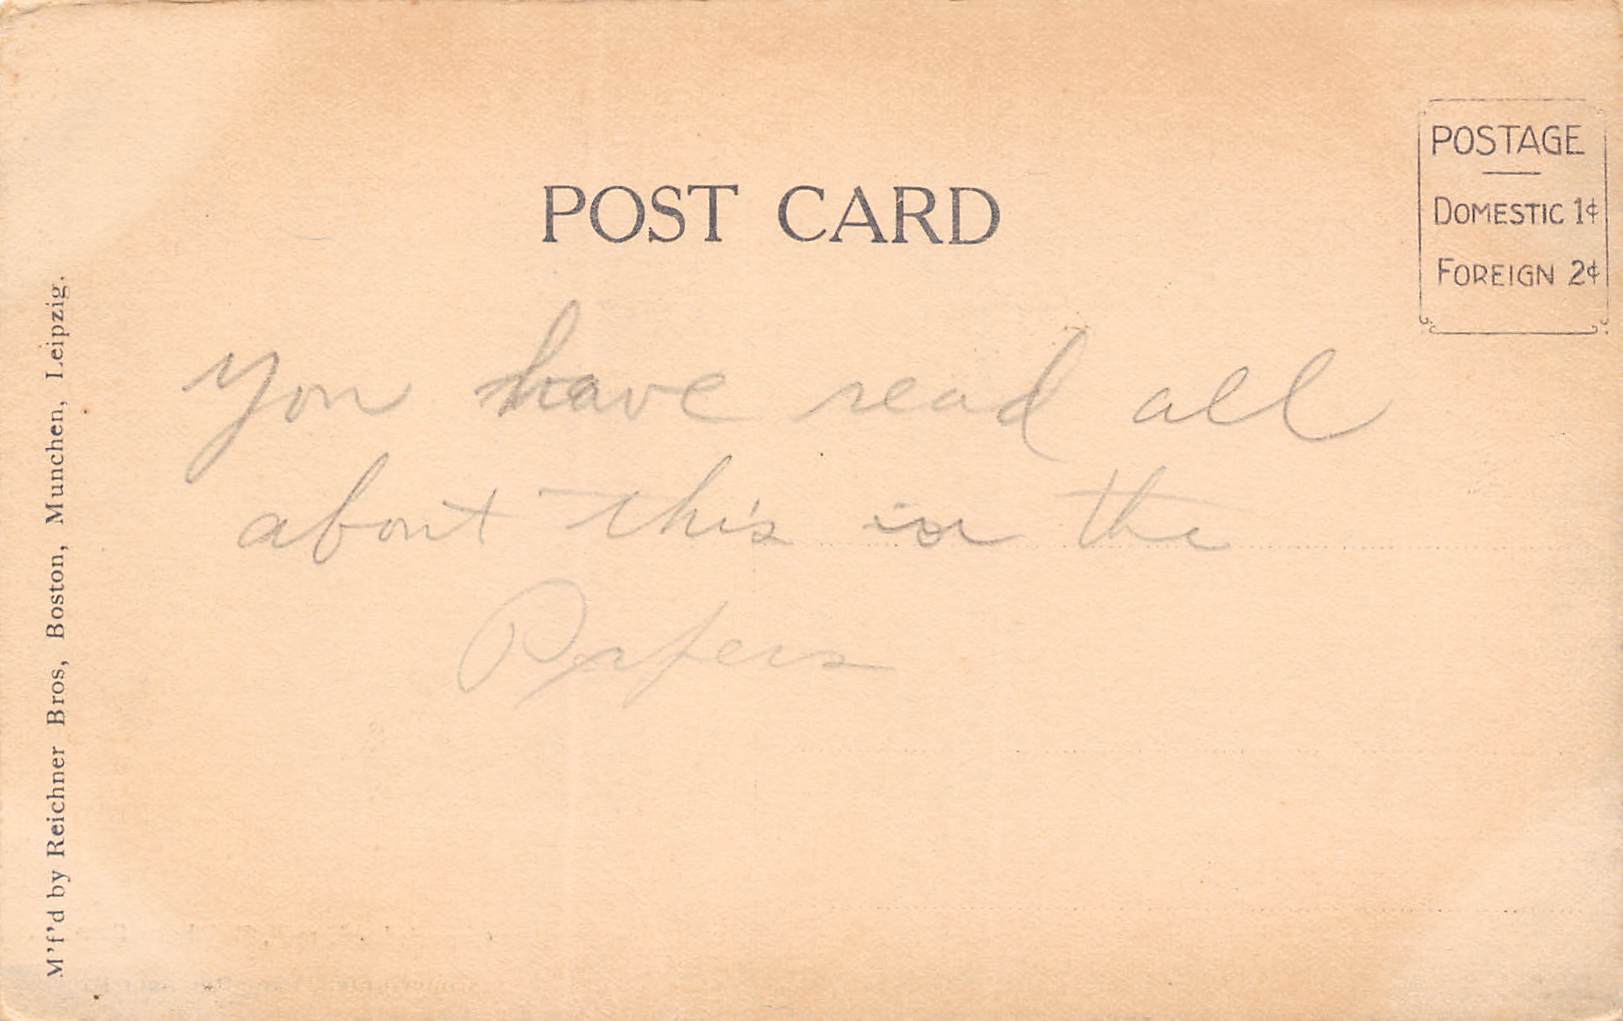 POST CARD
POSTAGE
DOMESTIC 1¢
FOREIGN 2¢
You have read all
about this in the
Papers
M'f'd by Reichner Bros, Boston, Munchen, Leipzig.